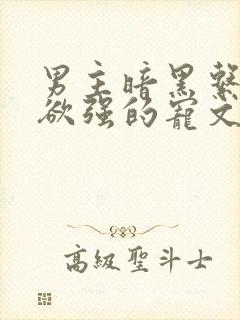 男主暗黑繫
欲強的寵文
高級聖斗士